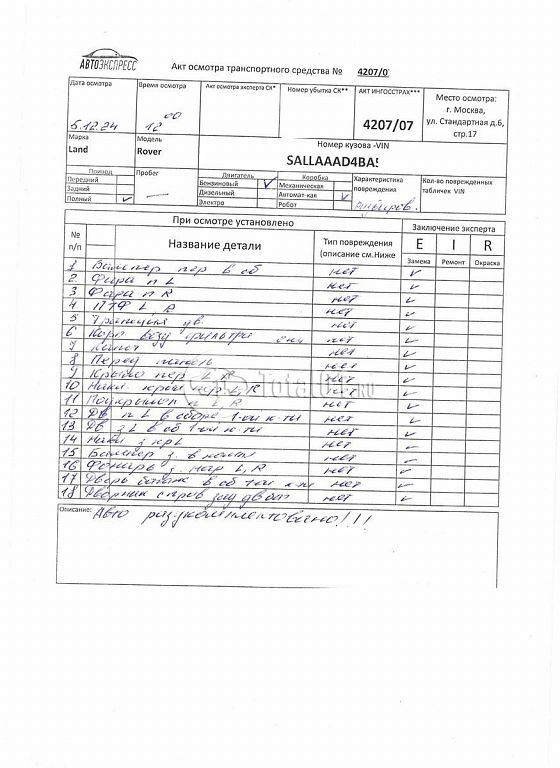 АВТОЭКСПРЕСС
Акт осмотра транспортного средства № 4207/0
Дата осмотра
5.12.24
Время осмотра
12 00
Акт осмотра эксперта СК*
Номер убытка СК**
АКТ ИНГОССТРАХ***
4207/07
Место осмотра:
г. Москва,
ул. Стандартная д.6,
стр.17
Марка
Land
Модель
Rover
Номер кузова -VIN
SALLAAAD4BA
Привод
Передний
Задний
Полный ✓
Пробег
—
Двигатель
Бензиновый ✓
Дизельный
Электро
Коробка
Механическая
Автомат-кая ✓
Робот
Характеристика
повреждения
Кол-во поврежденных
табличек VIN
При осмотре установлено
Заключение эксперта
№
п/п
Название детали
Тип повреждения
(описание см.Ниже
E I R
Замена Ремонт Окраска
1 Бампер пер в сб нет ✓
2 Фара п L нет ✓
3 Фара п R нет ✓
4 ПТФ L, R нет ✓
5 Трапеция дв. нет ✓
6 Корп возд фильтра нет ✓
7 Капот нет ✓
8 Перед панель нет ✓
9 Крыло пер L R нет ✓
10 Накл крыл пер L R нет ✓
11 Подкрылок п L R нет ✓
12 Дв п L в сборе 1-ои к-ти нет ✓
13 Дв з L в сб 1-ои к-ти нет ✓
14 Накл з кр L нет ✓
15 Бампер з. в компл нет ✓
16 Фонарь з. нар L, R нет ✓
17 Дверь багаж в сб 1ои к-ти нет ✓
18 Дворник зад двери нет ✓
Описание: Авто разукомплектовано!!!
Total
.RU